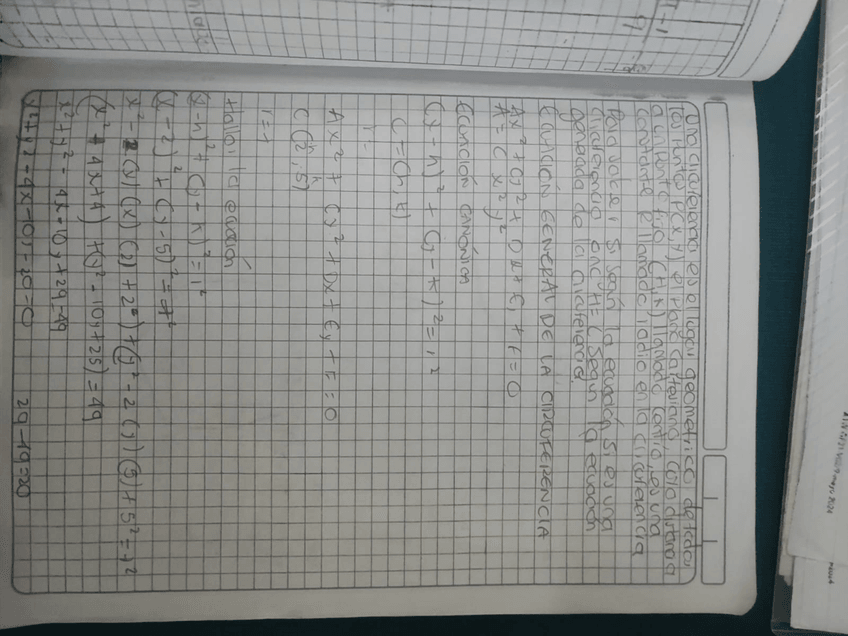 Una circunferencia es el lugar geometrico de todos
los puntos P(x,y) el plano cartesiano, cuya distancia
a un punto fijo (H,K) llamado centro, es una
constante r llamada radio en la circunferencia
Para saber si según la ecuación si es una
circunferencia en A=C según la ecuación
general de la circunferencia.
ECUACIÓN GENERAL DE LA CIRCUFERENCIA
Ax² + Cy² + Dx + Ey + F = 0
A = C x² y²
ECUACIÓN CANÓNICA
(x-h)² + (y-k)² = r²
C = (h, k)
r =
Ax² + Cy² + Dx + Ey + F = 0
C (2, 5)
r = 7
Hallo: la ecuación
(x-h)² + (y-k)² = r²
(x-2)² + (y-5)² = 7²
(x² - 4x + 4) + (y² - 10y + 25) = 49
x² + y² - 4x - 10y + 29 = 49
x² + y² - 4x - 10y - 20 = 0 29-49=20